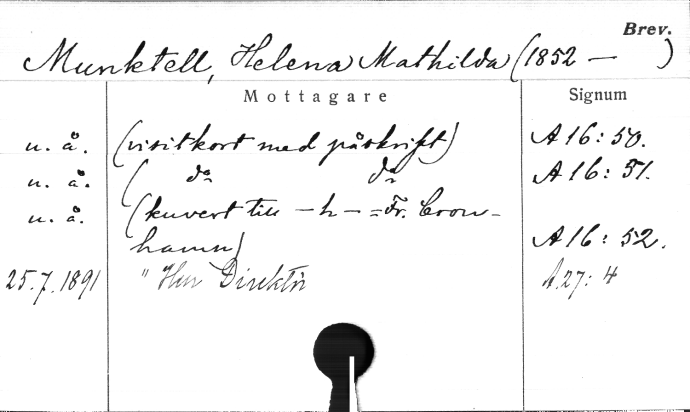 Brev.
Munktell, Helena Mathilda (1852 — )
Mottagare Signum
u. å. (visitkort med påskrift) A 16: 50.
u. å. ( do do A 16: 51.
u. å. (kuvert till —h— = Fr. Cron-
hamn) A 16: 52.
25.7.1891 " Herr Direktör A.27: 4